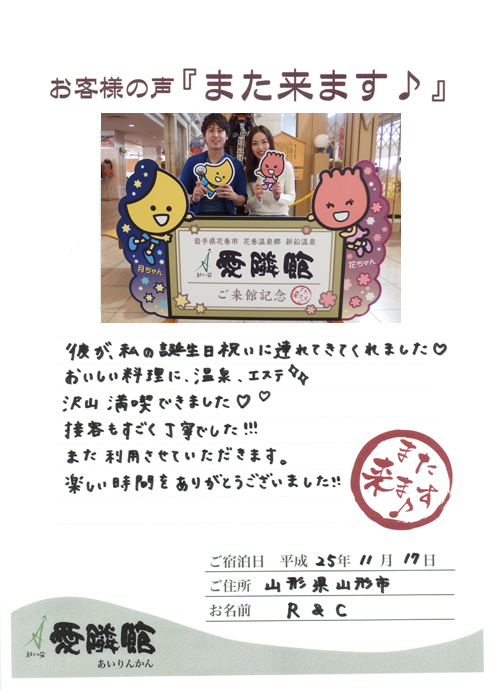 お客様の声『また来ます♪』
岩手県花巻市 花巻温泉郷 新鉛温泉
愛隣館
ご来館記念
月ちゃん
花ちゃん
彼が、私の誕生日祝いに連れてきてくれました♡
おいしい料理に、温泉、エステ✧✧
沢山 満喫できました♡♡
接客もすごく丁寧でした!!!
また 利用させていただきます。
楽しい時間をありがとうございました!!
また
来ます♪
ご宿泊日 平成 25年 11月 17日
ご住所 山形県山形市
お名前 R & C
愛隣館
あいりんかん